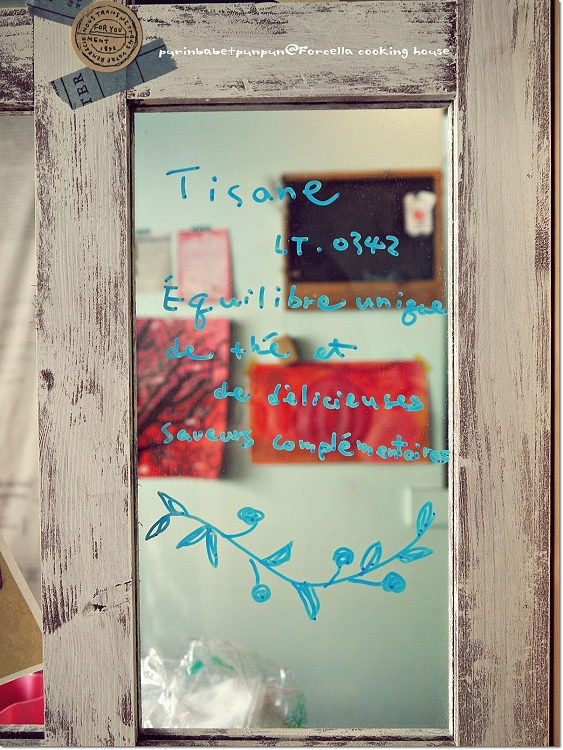 purinbabetpunpun@Forcella cooking house
FOR YOU
1892
Tisane
LT. 0342
Équilibre unique
de thé et
de délicieuses
saveurs complémentaires